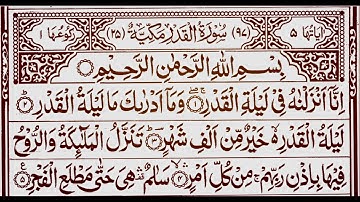 اٰیَاتُهَا ۵ (۹۷) سُوْرَةُ الْقَدْرِ مَكِّیَّةٌ (۲۵) رُكُوْعُهَا ۱
بِسْمِ اللّٰهِ الرَّحْمٰنِ الرَّحِیْمِ
اِنَّاۤ اَنْزَلْنٰهُ فِیْ لَیْلَةِ الْقَدْرِ ۚۖ ۱ وَمَاۤ اَدْرٰىكَ مَا لَیْلَةُ الْقَدْرِ ؕ ۲
لَیْلَةُ الْقَدْرِ ۙ۬ خَیْرٌ مِّنْ اَلْفِ شَهْرٍ ؕؔ ۳ تَنَزَّلُ الْمَلٰٓىِٕكَةُ وَالرُّوْحُ
فِیْهَا بِاِذْنِ رَبِّهِمْ ۚ مِنْ كُلِّ اَمْرٍ ۙۛ ۴ سَلٰمٌ ۛ۫ هِیَ حَتّٰى مَطْلَعِ الْفَجْرِ ۵ ع